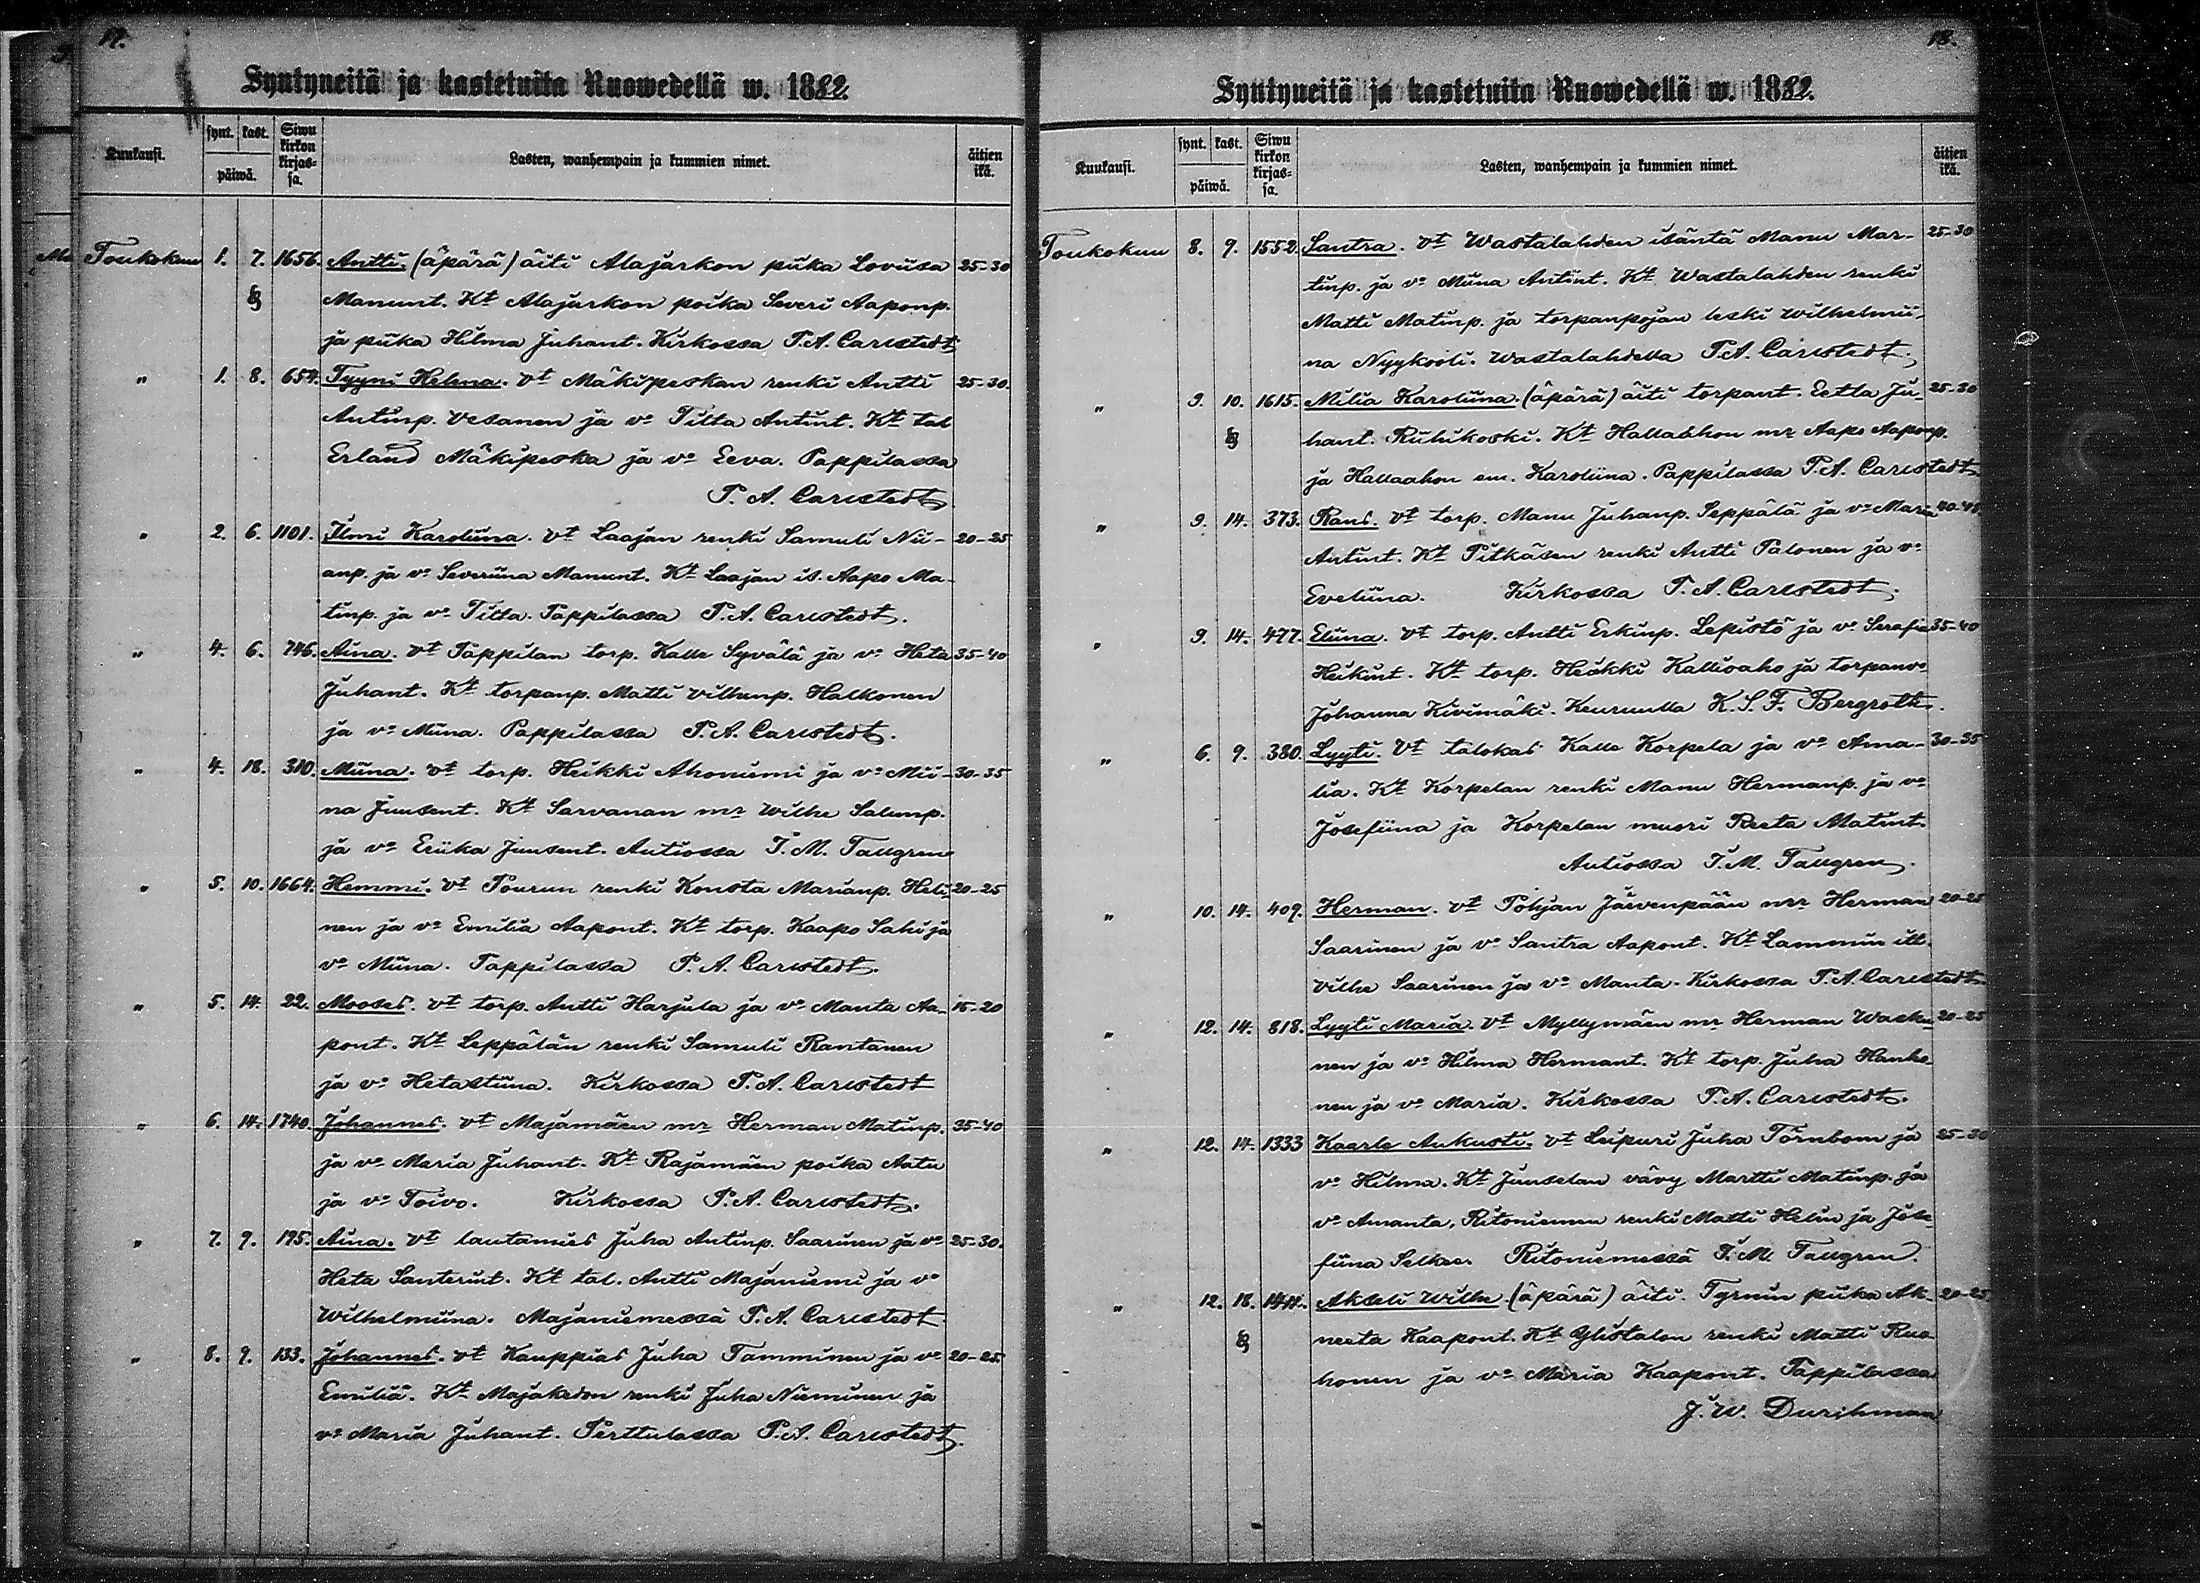 17.
Syntyneitä ja kastetuita Ruowedellä w. 1882.
Kuukausi. synt. kast. päiwä. Siwu kirkon kirjas- sa. Lasten, wanhempain ja kummien nimet. äitien ikä.
Toukokuu 1. 7. 1656. Antti. (äpärä) äiti Alajarkon piika Loviisa 25-30
Manunt. Kt Alajarkon poika Severi Aaponp.
ja piika Hilma Juhant. Kirkossa P.A. Carlstedt
" 1. 8. 654. Tyyni Helena. vt Mäkipeskan renki Antti 25-30.
Antinp. Vesanen ja vo Tilta Antint. Kt tal
Erland Mäkipeska ja vo Eeva. Pappilassa
P. A. Carlstedt
" 2. 6. 1101. Ilmi Karoliina. vt Laajan renki Samuli Nii- 20-25
anp. ja vo Severiina Manunt. Kt Laajan is. Aapo Ma-
tinp. ja vo Tilta. Pappilassa P.A. Carlstedt.
" 4. 6. 746. Aina. vt Pappilan torp. Kalle Syvälä ja vo Heta 35-40
Juhant. Kt torpanp. Matti Villenp. Halkonen
ja vo Miina. Pappilassa P.A. Carlstedt.
" 4. 18. 310. Miina. vt torp. Heikki Ahoniemi ja vo Mii- 30-35
na Juusent. Kt Sarvanan mr Wilhe Salump.
ja vo Eriika Juusent. Autiossa T.M. Tallgren
" 5. 10. 1664. Hemmi. vt Pourun renki Konsta Marianp. Heli- 20-25
nen ja vo Emilia Aapont. Kt torp. Kaapo Sahi ja
vo Miina. Pappilassa P.A. Carlstedt.
" 5. 14. 22. Mooses. vt torp. Antti Harjula ja vo Manta Aa- 15-20
pont. Kt Leppälän renki Samuli Rantanen
ja vo Hetastiina. Kirkossa P.A. Carlstedt
" 6. 14. 1740. Johannes. vt Majamäen mr Herman Matinp. 35-40
ja vo Maria Juhant. Kt Rajamäen poika Aatu
ja vo Toivo. Kirkossa P.A. Carlstedt.
" 7. 9. 195. Aina. vt lautamies Juha Antinp. Saarinen ja vo 25-30.
Heta Santerint. Kt tal. Antti Majaniemi ja vo
Wilhelmiina. Majaniemessä P.A. Carlstedt.
" 8. 9. 133. Johannes. vt Kauppias Juha Tamminen ja vo 20-25.
Emilia. Kt Majakedon renki Juha Nieminen ja
vo Maria Juhant. Perttulassa P.A. Carlstedt.
18.
Syntyneitä ja kastetuita Ruowedellä w. 1882.
Kuukausi. synt. kast. päiwä. Siwu kirkon kirjas- sa. Lasten, wanhempain ja kummien nimet. äitien ikä.
Toukokuu 8. 9. 1552. Santra. vt Wastalahden isäntä Manu Mar- 25-30
tinp. ja vo Miina Antint. Kt Wastalahden renki
Matti Matinp. ja torpanpojan leski Wilhelmii-
na Nyykooli. Wastalahdella P.A. Carlstedt.
" 9. 10. 1615. Milia Karoliina. (äpärä) äiti torpant. Eetla Ju- 25-30
hant. Riihikoski. Kt Hallaahon mr Aapo Aaponp.
ja Hallaahon em. Karoliina. Pappilassa P.A. Carlstedt.
" 9. 14. 373. Rans. vt torp. Manu Juhanp. Seppälä ja vo Maria 40-45
Antint. Kt Pitkäsen renki Antti Palonen ja vo
Eveliina. Kirkossa P.A. Carlstedt.
" 9. 14. 477. Eliina. vt torp. Antti Erkinp. Lepistö ja vo Serafia 35-40
Heikint. Kt torp. Heikki Kallioaho ja torpanvo
Johanna Kivimäki. Keuruulla K.S.F. Bergroth.
" 6. 9. 380. Lyyti. vt talokas Kalle Korpela ja vo Ama- 30-35
lia. Kt Korpelan renki Manu Hermanp. ja vo
Josefiina ja Korpelan muori Reeta Matint.
Autiossa T.M. Tallgren.
" 10. 14. 409. Herman. vt Pohjan Järvenpään mr Herman 20-25
Saarinen ja vo Santra Aapont. Kt Lammin itt.
Vilhe Saarinen ja vo Manta. Kirkossa P.A. Carlstedt.
" 12. 14. 818. Lyyti Maria. vt Myllymäen mr Herman Waski- 20-25
nen ja vo Hilma Hermant. Kt torp. Juha Hanhe-
nen ja vo Maria. Kirkossa P.A. Carlstedt.
" 12. 14. 1333 Kaarle Aukusti. vt Leipuri Juha Törnbom ja 25-30
vo Hilma. Kt Juuselan vävy Martti Matinp. ja
vo Amanta, Ritoniemen renki Matti Helin ja Jose-
fiina Selkee. Ritoniemessä T.M. Tallgren.
" 12. 18. Akseli Wilhe. (äpärä) äiti. Tyrnin piika Ak- 20-25
neeta Kaapont. Kt Ylistalon renki Matti Ruo-
honen ja vo Maria Kaapont. Pappilassa
J.W. Durchman